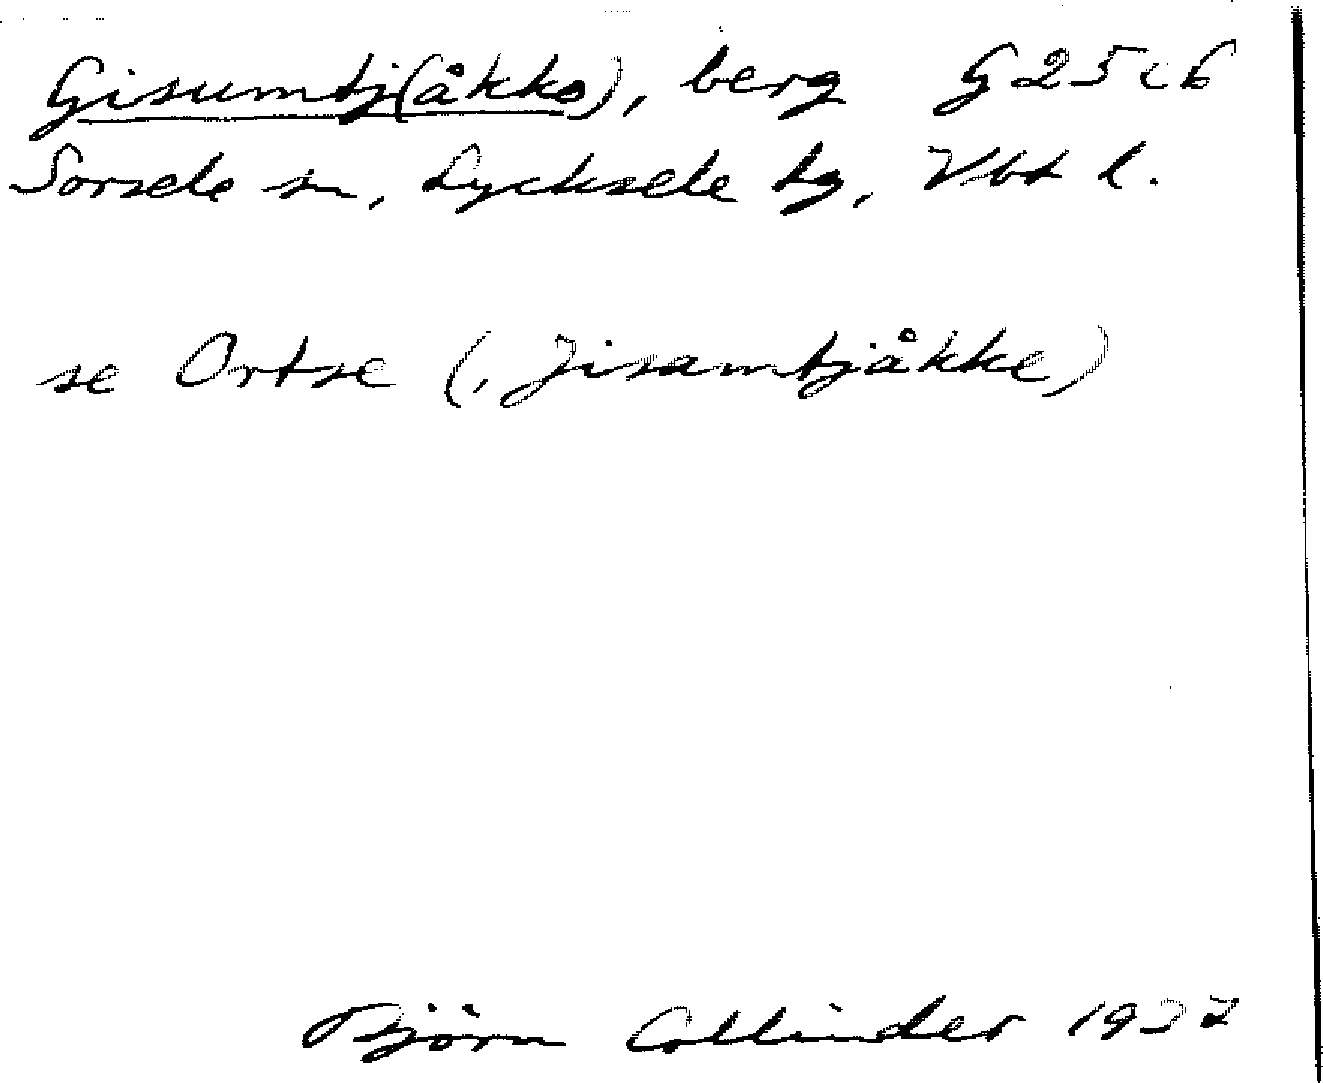 Gisumtj(åkko), berg G25c6
Sorsele sn, Lycksele tg, Vbt l.
se Ortse (, Jisamtjåkke)
Björn Collinder 1937